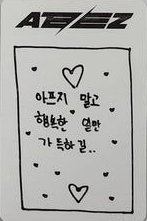 ATEEZ
아프지 말고
행복한 일만
가득하길..